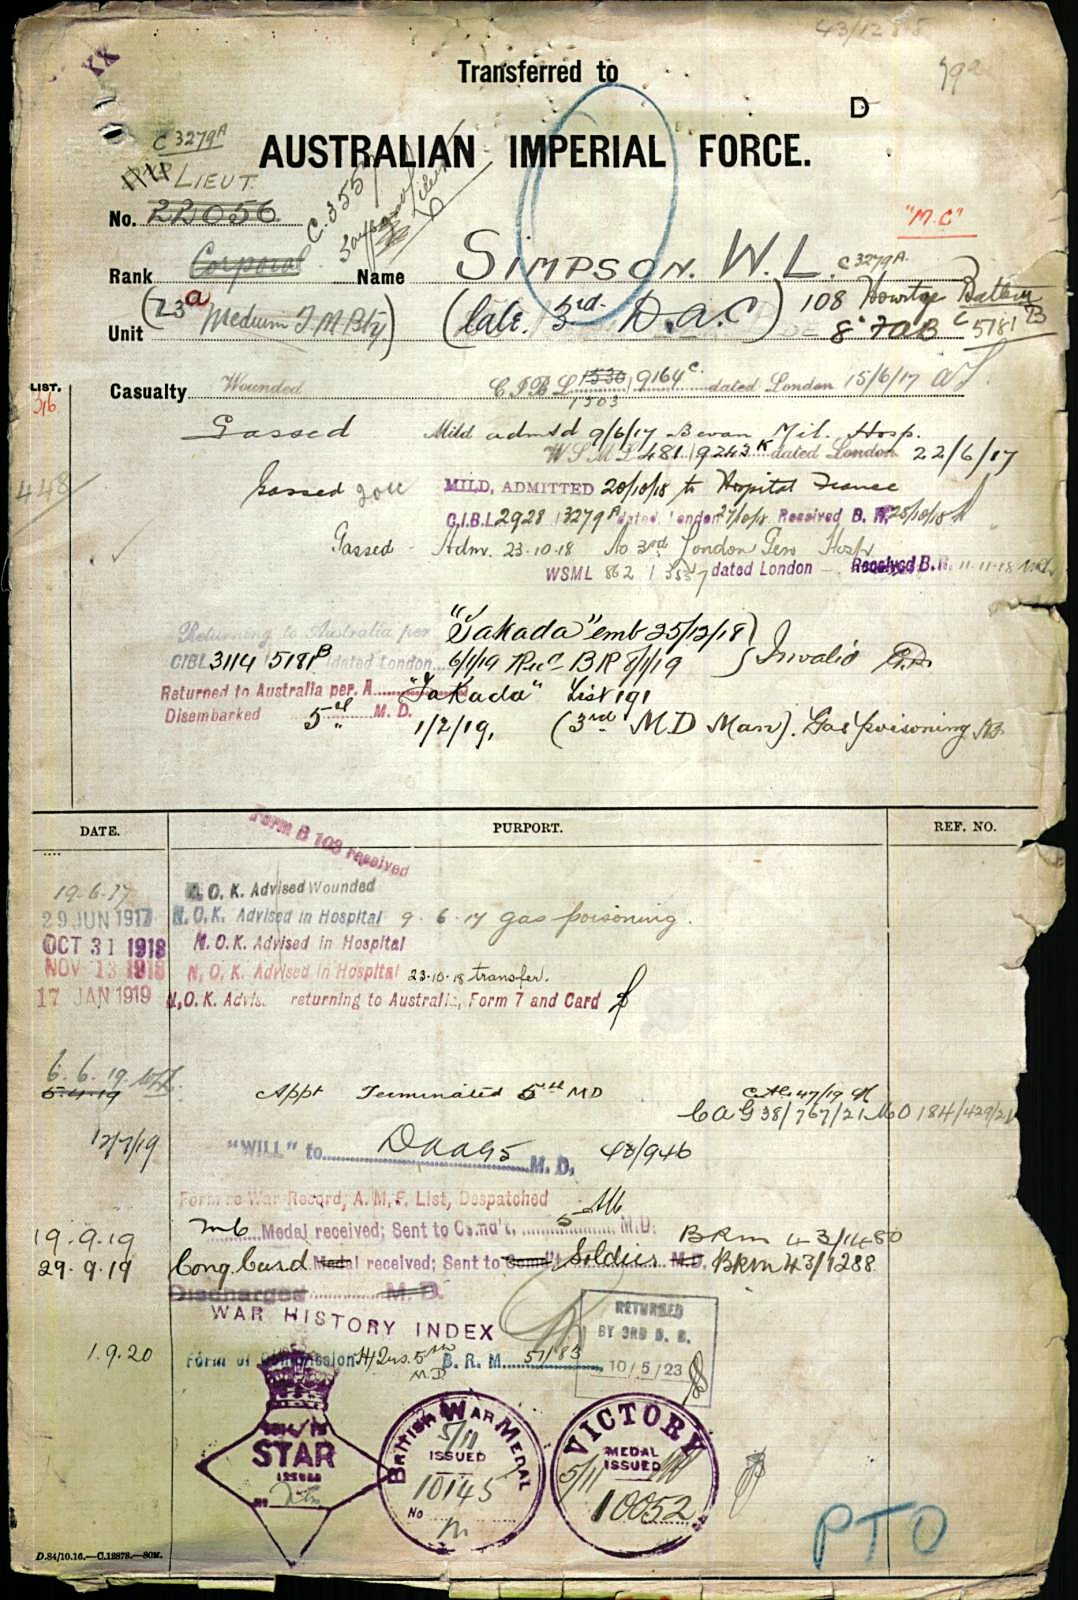 43/1288
Transferred to
D
AUSTRALIAN IMPERIAL FORCE.
C 3279A
LIEUT.
No. 22056
C.3557
"M.C"
Rank Corporal Name SIMPSON. W. L. C 3279A
Unit (23a Medium T M Bty) (late. 3rd. D.A.C) 108 Howitzer Battery
8 FAB C 5181 B
LIST. 316
Casualty Wounded C I B L 1530 9164 C dated London 15/6/17
1503
Gassed Mild admtd 9/6/17 Bevan Mil. Hosp.
W S M L 481 9243 K dated London 22/6/17
448
Gassed MILD, ADMITTED 20/10/18 to Hospital France
C.I.B.L 2928 13279A dated London 27/10/18 Received B. R. 25/10/18
Gassed - Adm. 23-10-18 No 3rd London Gen Hosp
WSML 862 dated London - Received B.R. 11-11-18
Returning to Australia per "Takada" emb 25/12/18
CIBL 3114 5181B dated London 6/1/19 Rec. BR 8/1/19 Invalid
Returned to Australia per. A "Takada" List 191
Disembarked 5th M. D. 1/2/19, (3rd M.D Man). Gas poisoning
DATE. PURPORT. REF. NO.
Form B 103 received
19.6.17 N. O. K. Advised Wounded
29 JUN 1917 N. O. K. Advised in Hospital 9. 6. 17 gas poisoning.
OCT 31 1918 N. O. K. Advised in Hospital
NOV 13 1918 N, O, K. Advised in Hospital 23-10-18 transfer.
17 JAN 1919 N, O. K. Advis. returning to Australia, Form 7 and Card
6. 6. 19
5.4.19 Appt Terminated 5th MD
C A G 38/767/21 MD 184/429/21
12/7/19 "WILL" to DAAG5 M. D. 43/946
Form re War Record, A. M. F. List, Despatched
19.9.19 Medal received; Sent to Comd't. 5 M.D. BRM 43/1480
29.9.19 Cong. Card Medal received; Sent to Comd't Soldier M.D. BRM 43/1288
Discharged M. D.
WAR HISTORY INDEX
RETURNED
BY 3RD D. B.
10/5/23
1.9.20 Form of Commission H/Qrs. 5th M.D. B. R. M. 51/83
1914/15
STAR
ISSUED
No
BRITISH WAR MEDAL
5/11
ISSUED
10145
No
VICTORY
MEDAL
ISSUED
5/11
10052
PTO
D.84/10.16.—C.12878.—50M.